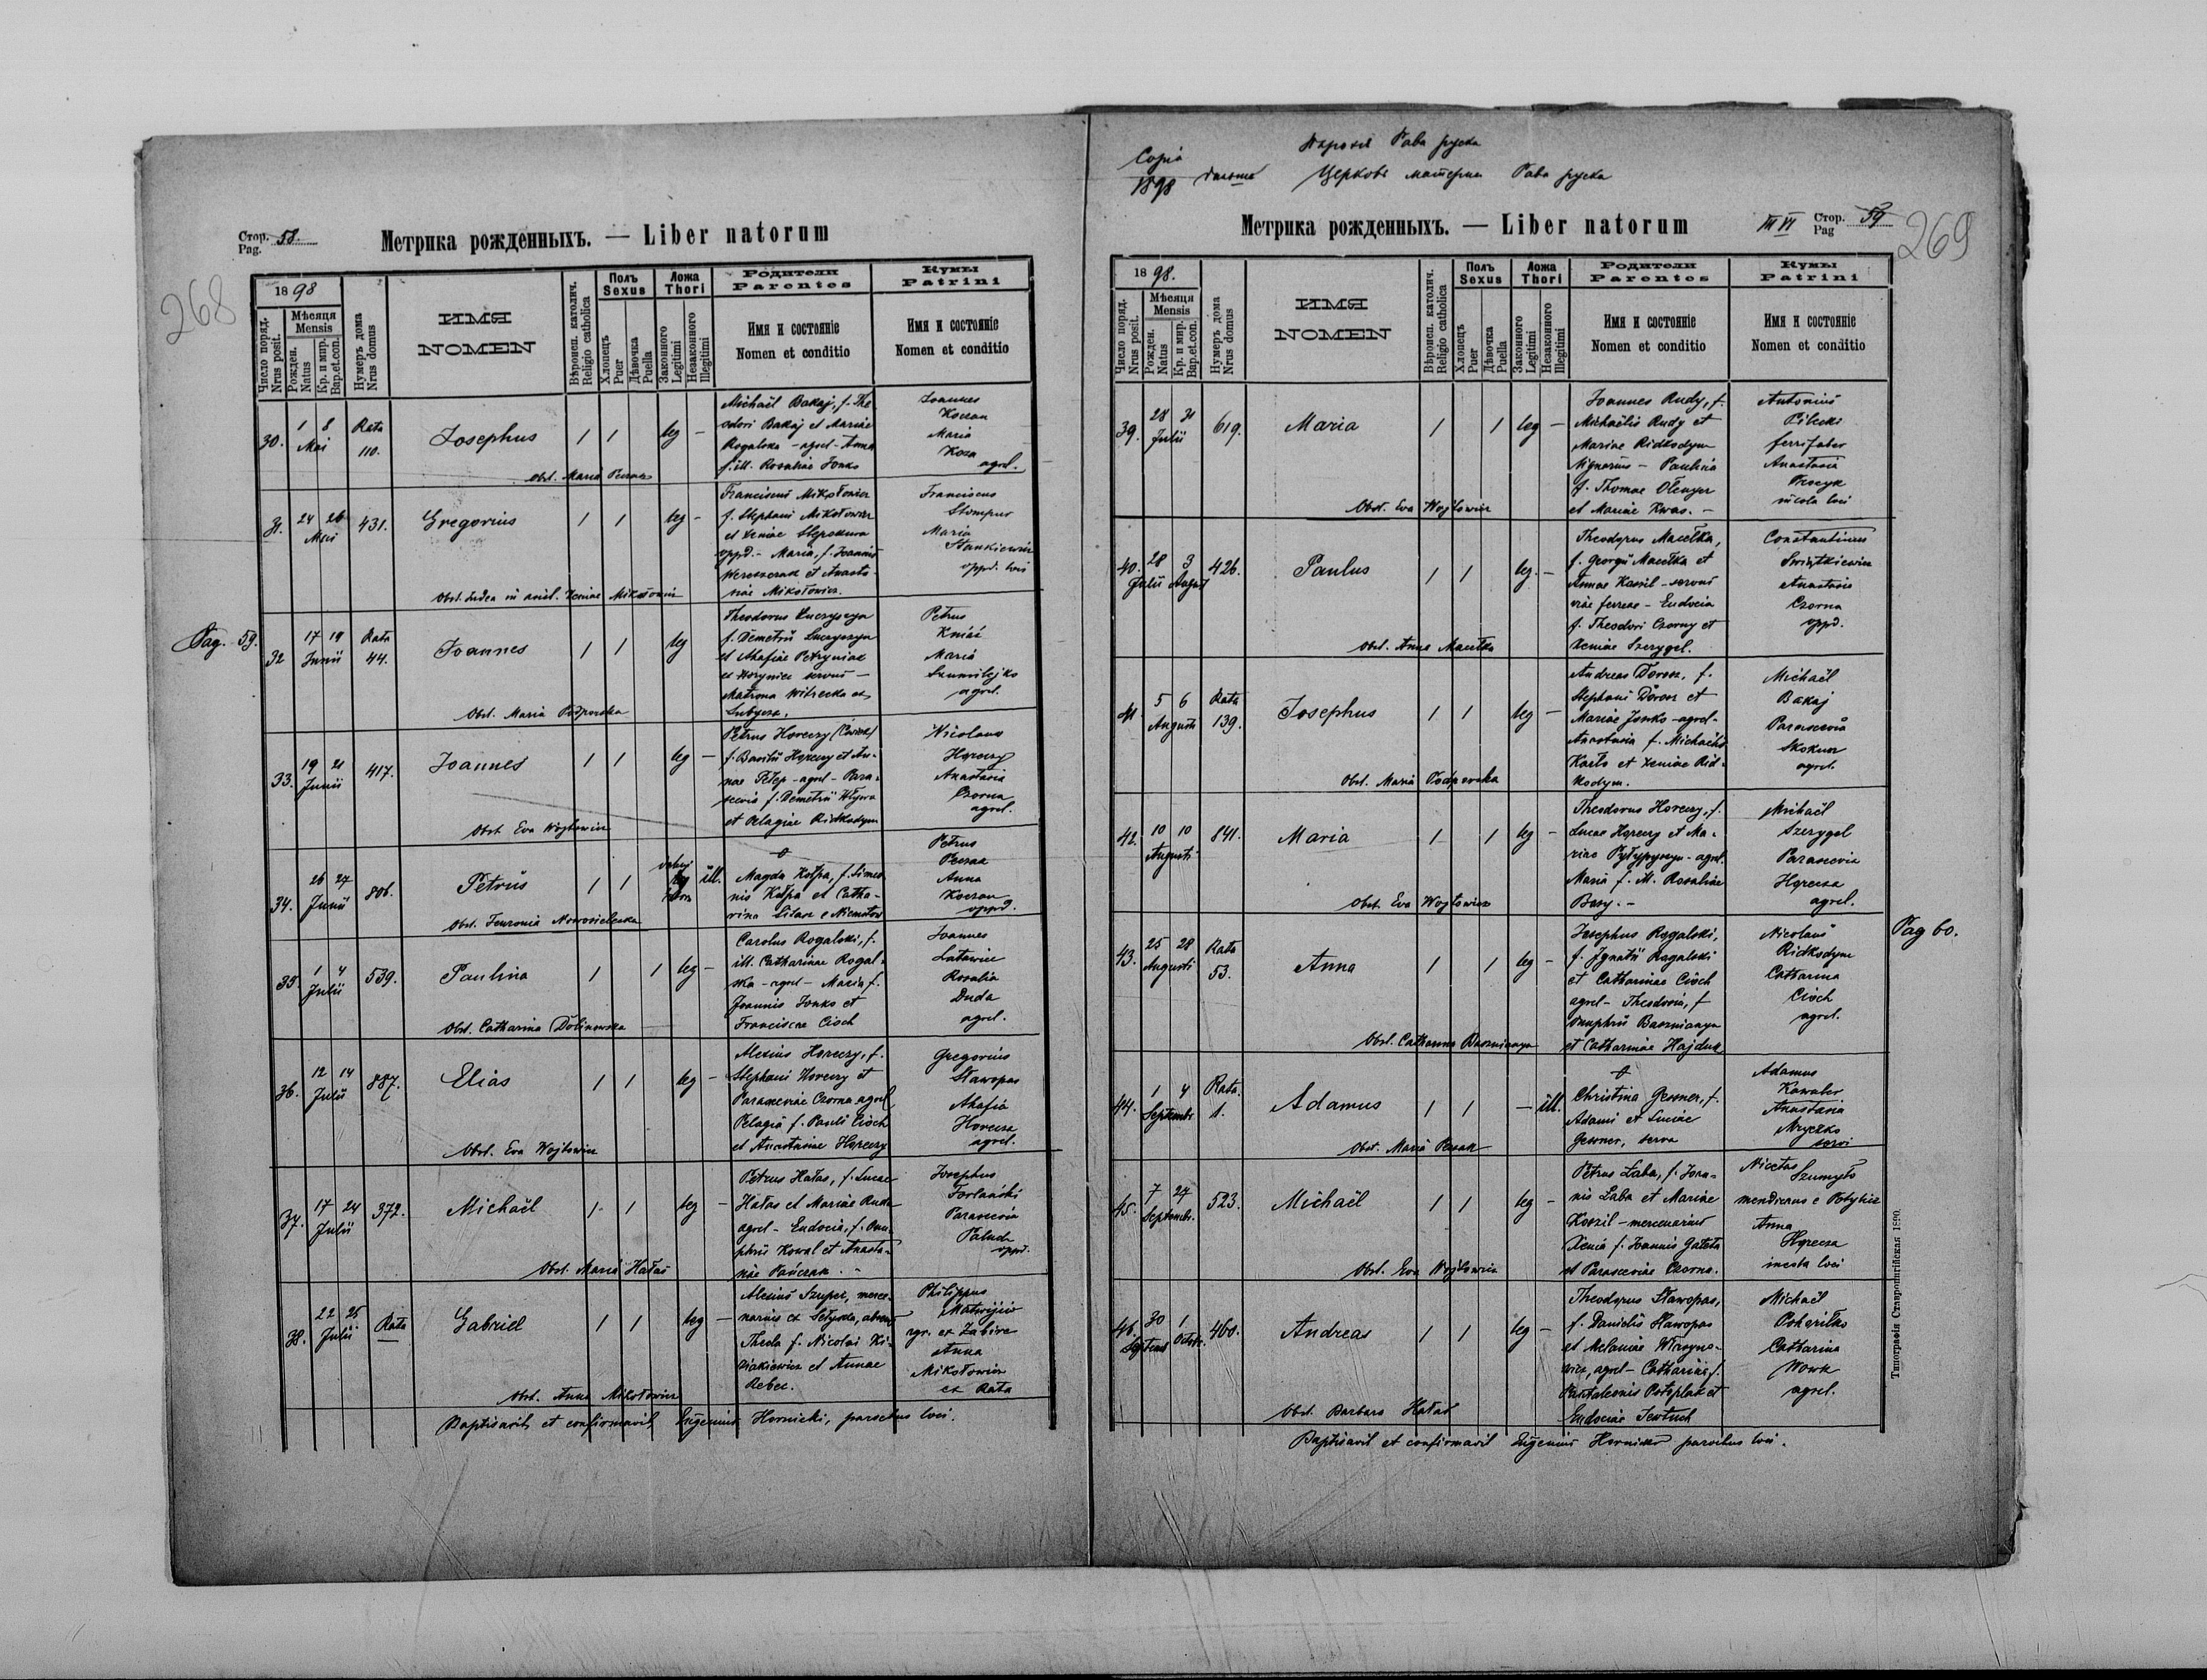 268
Стор. Pag. 58.
Метрика рожденныхъ. — Liber natorum
1898
Число поряд. Nrus posit.
Мѣсяця Mensis
Рожден. Natus
Кр. и мир. Bap.et.con.
Нумеръ дома Nrus domus
ИМЯ
NOMEN
Вѣроисп. католич. Religio catholica
Полъ Sexus
Хлопецъ Puer
Дѣвочка Puella
Ложа Thori
Законного Legitimi
Незаконного Illegitimi
Родители
Parentes
Имя и состоянiе
Nomen et conditio
Кумы
Patrini
Имя и состоянiе
Nomen et conditio
30. 1 8 Maj Rata 110. Josephus 1 1 leg —
Michaël Bakaj, f. The
odori Bakaj et Mariae
Rogalska - agrel - Anna
f. ill. Rosaliae Jonko
Joannes
Koczan
Maria
Koza
agrel.
Obst. Maria Peczak
31. 24 26 Maii 431. Gregorius 1 1 leg -
Franciscus Mikołowicz
f. Stephani Mikołowicz
et Xeniae
oppd. - Maria, f. Joannis
et Anasta-
siae Mikołowicz.
Franciscus
Stompur
Maria
Stankiewicz
oppd. loci
Obst. Xeniae Mikołowicz
Pag. 59.
32 17 19 Junii Rata 44. Joannes 1 1 leg
Theodorus Łuczyszyn
f. Demetrii Łuczyszyn
et Ahafiae Petryniak
ex Horyniec servus —
Matrona Witrecka ex
Lubycza.
Petrus
Kniaź
Maria
Szumilejko
agrel.
Obst. Maria Podporska
33. 19 21 Junii 417. Joannes 1 1 leg —
Petrus Horeczy
f. Basilii Horeczy et An-
nae - agrel - Para-
scevia f. Demetrii
et Pelagiae Ridkodym
Nicolaus
Horeczy
Anastasia
Czorna
agrel.
Obst. Eva Wojtowicz
34. 26 27 Junii 806. Petrus 1 1 leg ill.
Magda Kołpa, f. Simeo
nis Kołpa et Catha-
rina e Niemirow
Petrus
Peczak
Anna
Koczan
oppd.
Obst. Fenronia Nowosielecka
35. 1 4 Julii 539. Paulina 1 1 leg —
Carolus Rogalski, f.
ill. Catharinae Rogal-
ska - agrel - Maria f.
Joannis Jonko et
Franciscae Cioch
Joannes
Latawiec
Rosalia
Duda
agrel.
Obst. Catharina Dolinowska
36. 12 14 Julii 887. Elias 1 1 leg —
Alexius Horeczy, f.
Stephani Horeczy et
Parasceviae Czorna agrel
Pelagia f. Pauli Cioch
et Anastasiae Horeczy
Gregorius
Sławopas
Ahafia
Horecza
agrel.
Obst. Eva Wojtowicz
37. 17 24 Julii 372. Michaël 1 1 leg —
Petrus Hałas, f. Lucae
Hałas et Mariae Ruda
agrel - Eudocia, f. Onu-
phrii Kowal et Anasta-
siae Pańczak. -
Josephus
Forlański
Parascevia
Paluch
oppd.
Obst. Maria Hałas
38. 22 25 Julii Rata Gabriel 1 1 leg —
Alexius Szuper, merce-
narius ex
Thecla f. Nicolai Ki-
ziakiewicz et Annae
Rebec.
Philippus
Matwijiw
agr. ex Zabire
Anna
Mikołowicz
ex Rata
Obst. Anna Mikołowicz
Baptisavit et confirmavit Eugenius Hornicki, parochus loci.
Copia
1898
Парохія Рава руска
Церковь матерна Рава руска
Метрика рожденныхъ. — Liber natorum
III VI
Стор. Pag 59
269
1898.
Число поряд. Nrus posit.
Мѣсяця Mensis
Рожден. Natus
Кр. и мир. Bap.et.con.
Нумеръ дома Nrus domus
ИМЯ
NOMEN
Вѣроисп. католич. Religio catholica
Полъ Sexus
Хлопецъ Puer
Дѣвочка Puella
Ложа Thori
Законного Legitimi
Незаконного Illegitimi
Родители
Parentes
Имя и состоянiе
Nomen et conditio
Кумы
Patrini
Имя и состоянiе
Nomen et conditio
39. 28 31 Julii 619. Maria 1 1 leg —
Joannes Rudy, f.
Michaëlis Rudy et
Mariae Ridkodym
lignarius — Paulina
f. Thomae Olenger
et Mariae Kwas. —
Antonius
Pilecki
ferrifaber
Anastasia
incola loci
Obst. Eva Wojtowicz
40. 28 Julii 3 August 426. Paulus 1 1 leg. —
Theodorus Macełka,
f. Georgii Macełka et
Annae Koszil - servus
viae ferreae - Eudocia
f. Theodori Czorny et
Xeniae Szerygel.
Constantinus
Świątkiewicz
Anastasia
Czorna
oppd.
Obst. Anna Macełka
41. 5 6 Augusti Rata 139. Josephus 1 1 leg —
Andreas Dorosz, f.
Stephani Dorosz et
Mariae Jonko - agrel -
Anastasia f. Michaëlis
Karło et Xeniae Rid-
kodym.
Michaël
Bakaj
Parascevia
Skokun
agrel.
Obst. Maria Podporska
42. 10 10 Augusti 841. Maria 1 1 leg —
Theodorus Horeczy, f.
Lucae Horeczy et Ma-
riae Pyłypyszyn - agrel.
Maria f. M. Rosaliae
Bary. -
Michaël
Szerygel
Parascevia
Horecza
agrel.
Obst. Eva Wojtowicz
Pag 60.
43. 25 28 Augusti Rata 53. Anna 1 1 leg —
Josephus Rogalski,
f. Ignatii Rogalski
et Catharinae Cioch
agrel - Theodosia, f
Onuphrii Basznianyn
et Catharinae Hajduk
Nicolaus
Ridkodym
Catharina
Cioch
agrel.
Obst. Catharina Basznianyn
44. 1 4 Septembr Rata 1. Adamus 1 1 — ill.
Christina Gessner, f.
Adami et Luciae
Gessner, serva
Adamus
Kawaler
Anastasia
Mryczko
servi
Obst. Maria Peczak
45. 7 27 Septembr. 523. Michaël 1 1 leg —
Petrus Łaba, f. Joan-
nis Łaba et Mariae
Koszil - mercenarius
Xenia f. Joannis Gałata
et Parasceviae Czorna.
Nicetas Szumyło
mendicans e Potylicz
Anna
Horecza
incola loci
Obst. Eva Wojtowicz
46. 30 Septemb 1 Octobr. 460. Andreas 1 1 leg —
Theodorus Sławopas,
f. Danielis Sławopas
et Melaniae
agrel - Catharina f.
Pantaleonis Potoplak et
Eudociae Jewtuch
Michaël
Catharina
Wowk
agrel.
Obst. Barbara Hałas
Baptisavit et confirmavit Eugenius Hornicki parochus loci.
Типографія Ставропигійская 1890.